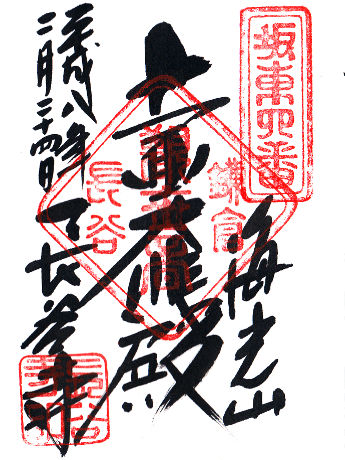 坂東四番
鎌倉
長谷
海光山
十一面大悲殿
平成八年
二月二十四日
長谷寺